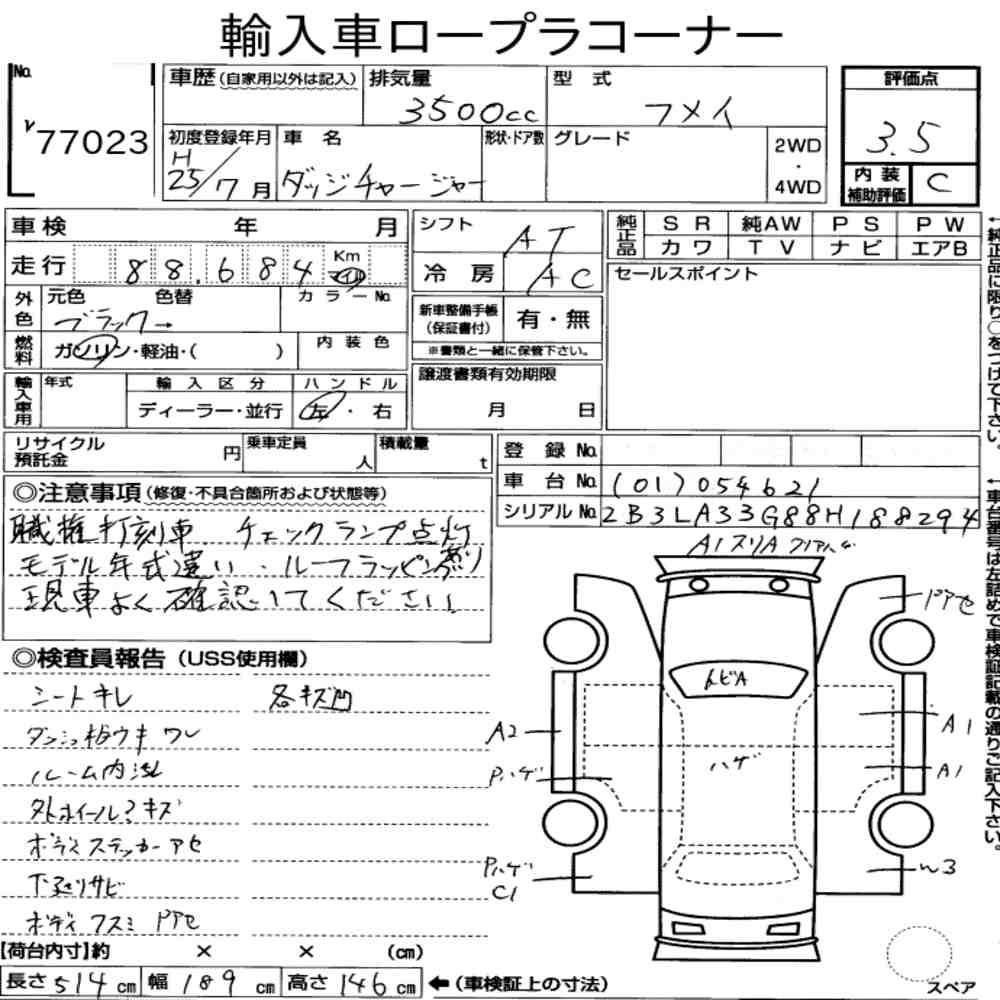 輸入車ロープラコーナー
No.
77023
車歴(自家用以外は記入)
排気量
3500cc
型 式
フメイ
評価点
3.5
初度登録年月
H
25/7月
車 名
ダッジチャージャー
形状・ドア数
グレード
2WD
・
4WD
内装
補助評価
C
車検 年 月
走行 88.684 Km マイル
シフト AT
冷房 AC
純正品
SR 純AW PS PW
カワ TV ナビ エアB
セールスポイント
外色
元色 色替 カラーNo.
ブラック→
燃料
ガソリン・軽油・( )
内装色
新車整備手帳
(保証書付)
有・無
※書類と一緒に保管下さい。
輸入車用
年式
輸入区分
ハンドル
ディーラー・並行
左・右
譲渡書類有効期限
月 日
リサイクル
預託金
円
乗車定員
人
積載量
t
登 録 No.
車 台 No. (01)054621
シリアルNo. 2B3LA33G88H188294
←純正品に限り○をつけて下さい。
←車台番号は左詰めで車検証記載の通りご記入下さい。
◎注意事項(修復・不具合箇所および状態等)
職権打刻車 チェックランプ点灯
モデル年式違い・ルーフラッピングあり
現車よく確認してください
◎検査員報告(USS使用欄)
シートキレ 各キズ凹
ダッシュ板ウキ ワレ
ルーム内
外ホイール キズ
ボディステッカーアセ
下廻りサビ
ボディ フスミ Pアセ
A1スリA
PアセトビA
A2
Pハゲ
ハゲ
A1
A1
Pハゲ
C1
W3
スペア
【荷台内寸】約 × × (cm)
長さ514cm 幅189cm 高さ146cm ←(車検証上の寸法)